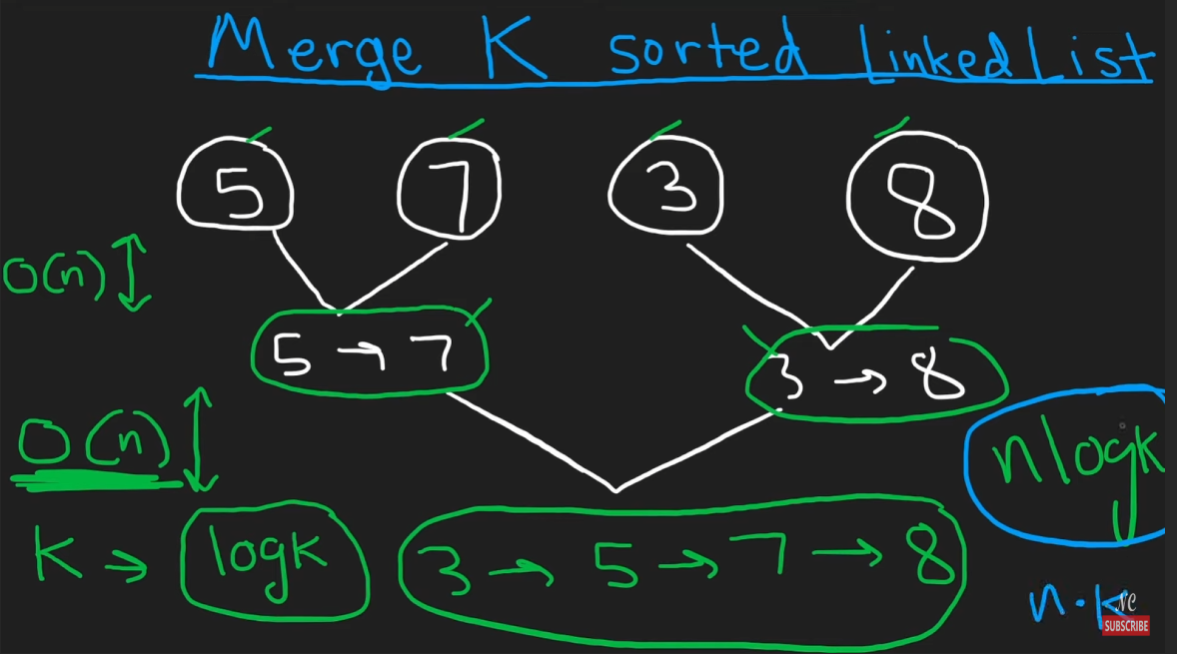 Merge K sorted Linked List
5 7 3 8
O(n)
5 → 7 3 → 8
O(n)
nlogk
K → logk
3 → 5 → 7 → 8
n·k
NC
SUBSCRIBE